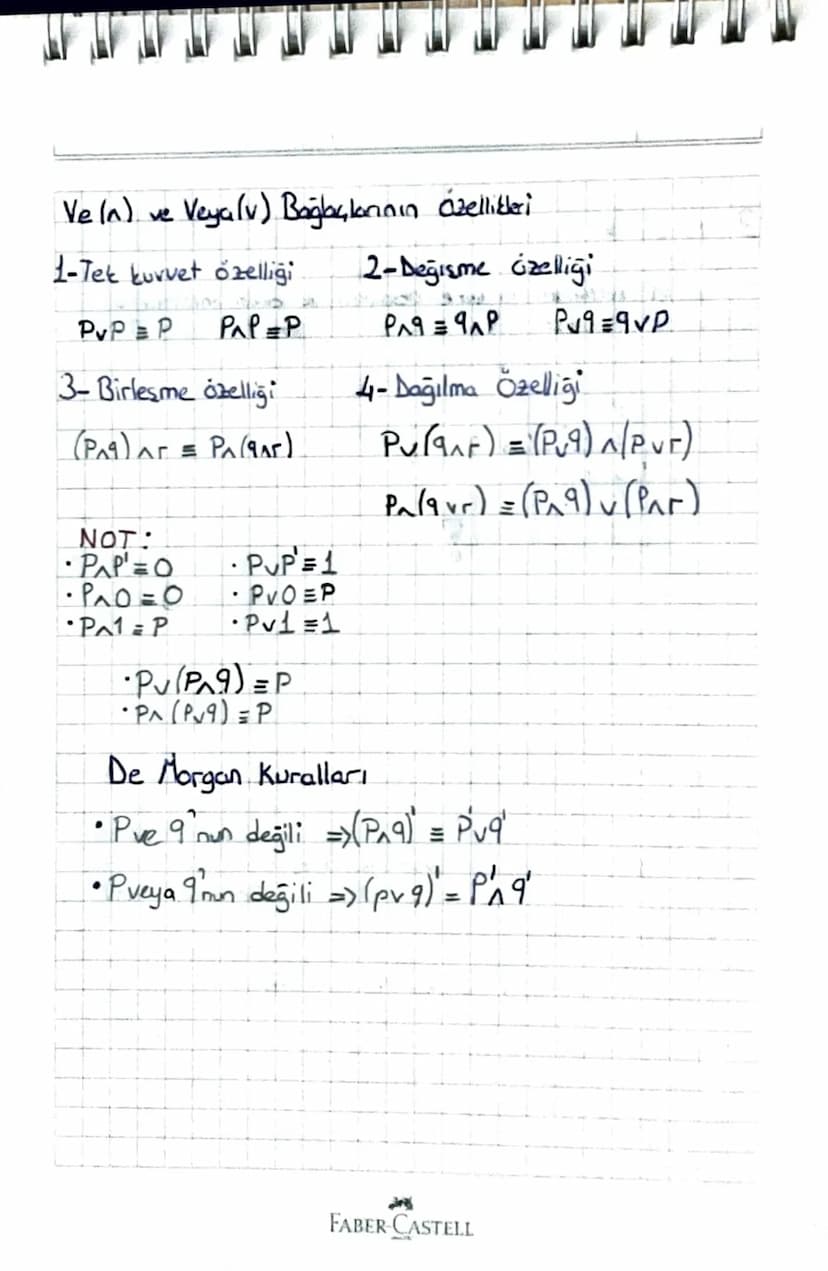 Ve (∧) ve Veya (∨) Bağlaçlarının Özellikleri
1-Tek kuvvet özelliği 2-Değişme özelliği
P∨P ≡ P P∧P ≡ P P∧q ≡ q∧P P∨q ≡ q∨P
3- Birleşme özelliği 4- Dağılma Özelliği
(P∧q) ∧ r ≡ P∧(q∧r) P∨(q∧r) ≡ (P∨q) ∧ (P∨r)
P∧(q∨r) ≡ (P∧q) ∨ (P∧r)
NOT:
• P∧P' ≡ 0 • P∨P' ≡ 1
• P∧0 ≡ 0 • P∨0 ≡ P
• P∧1 ≡ P • P∨1 ≡ 1
• P∨(P∧q) ≡ P
• P∧(P∨q) ≡ P
De Morgan Kuralları
• P ve q'nun değili ⇒ (P∧q)' ≡ P'∨q'
• P veya q'nun değili ⇒ (p∨q)' = P'∧q'
FABER-CASTELL